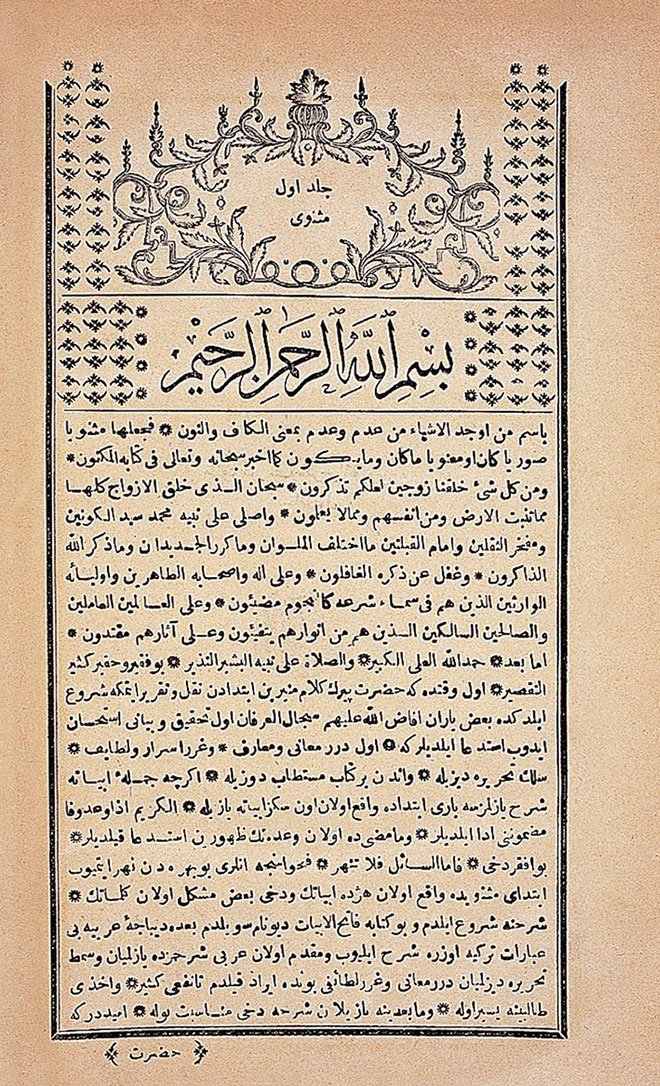 جلد اول
مثنوى
بسم الله الرحمن الرحيم
باسم من اوجد الاشياء من عدم وعدم بمعنى الكاف والنون * فجعلها مثنويا
صوريا كان او معنويا ما كان وما يكون كما اخبر سبحانه وتعالى فى كتابه المكنون *
ومن كل شئ خلقنا زوجين لعلكم تذكرون * سبحان الذى خلق الازواج كلها
مما تنبت الارض ومن انفسهم ومما لا يعلمون * واصلى على نبيه محمد سيد الكونين
ومفخر الثقلين وامام القبلتين ما اختلف الملوان وما كرر الجديدان وما ذكر الله
الذاكرون * وغفل عن ذكره الغافلون * وعلى اله واصحابه الطاهرين واوليائه
الوارثين الذين هم فى سماء شرعه كالنجوم مضيئون * وعلى العالمين العاملين
والصالحين السالكين الذين هم من انوارهم يتفيئون وعلى آثارهم مقتدون *
اما بعد * حمدالله العلى الكبير * والصلاة على نبيه البشير النذير * بو فقير و حقير كثير
التقصير * اول وقتده كه حضرت پيرك كلام منيرين ابتدادن نقل و تقريرا يتمكه شروع
ايلدكده بعض ياران افاض الله عليهم سجال العرفان اول تحقيق و بيانى استحسان
ايدوب استدعا ايلديلر كه * اول درر معانى ومعارف * وغرر اسرار ولطايف *
سلك تحريره ديزيله * واندن بر كتاب مستطاب دوزيله * اكرچه جمله ابياته
شرح يازلزسه بارى ابتداده واقع اولان اون سكز ابياته يازيله * الكريم اذا وعد وفا
مضمونى ادا ايلديلر * وما مضى ده اولان وعده نك ظهورين استدعا قيلديلر *
بو افقر دخى * فاما السائل فلا تنهر * فحواسنجه انلرى بو بهره دن نهر ايتميوب
ابتداى مثنويده واقع اولان هژده ابياتك ودخى بعض مشكل اولان كلماتك *
شرحنه شروع ايلدم و بو كتابه فاتح الابيات ديو نام سويلدم بعده ديباجه عربيه يى
عبارات تركيه اوزره شرح ايليوب ومقدم اولان عربى شرحمزده يازليان وسمط
تحريره ديزليان درر معانى وغرر لطائفى بونده ايراد قيلدم تا نفعى كثير * واخذى
طالبينه يسير اوله * وما بعدينه يازيلان شرحه دخى مناسبت بوله * اميددر كه
حضرت